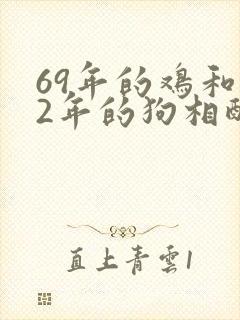 69年的鸡和
2年的狗相
直上青雲1